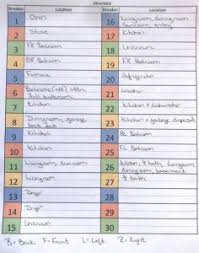 Directory
Breaker Location Breaker Location
1 Oven
16 Livingroom, diningroom
2 Stove
17 Kitchen
3 FR Bedroom
18 Unknown
4 BR Bedroom
19 FL Bedroom
5 Furnace
20 Refrigerator
6
21 Washer
7 Kitchen
22 Kitchen + dishwasher
8 Diningroom,
23 Kitchen + garbage disposal
9 Kitchen
24 BL Bedroom
10 Kitchen
25 FL Bedroom
11 Livingroom, Sunroom
26 Kitchen, livingroom,
diningroom, basement
12 Livingroom
27
13 Dryer
28
14 Dryer
29
15 Unknown
30
B = Back F = Front L = Left R = Right